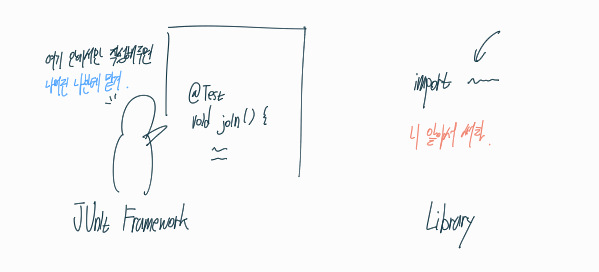 여기 안에서만 작성해주면
나머진 나한테 맡겨.
@Test
void join() {
JUnit Framework
import
니 알아서 써라.
Library